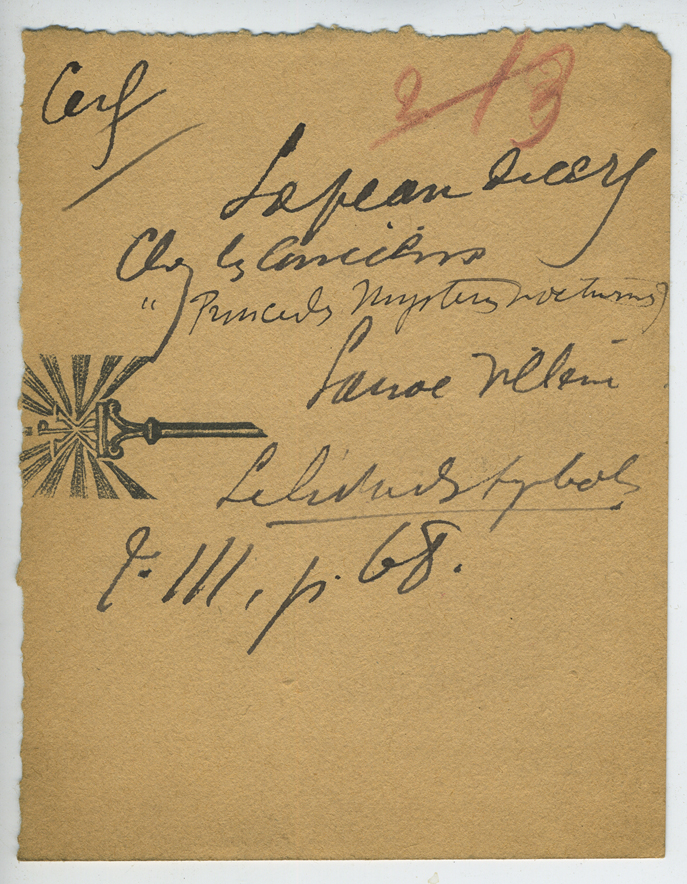 Cerf
213
La peau de cerf
Chez les anciens
" Prince des Mystères nocturnes
Lanoe Villène
Le Livre des Symboles
T. III, p. 68.